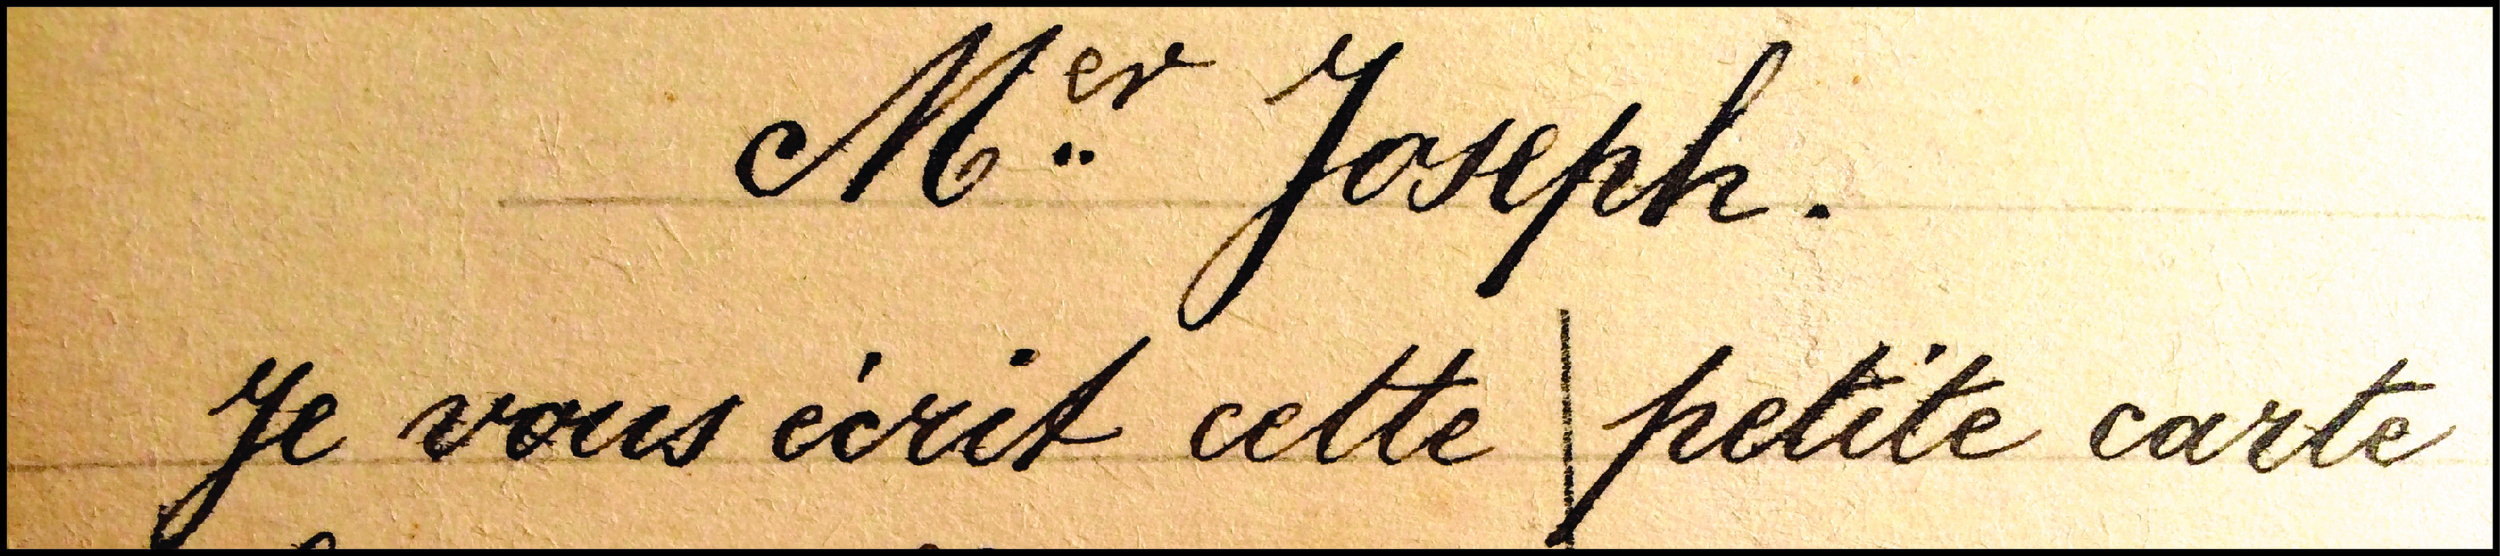 Mer Joseph.
Je vous écrit cette petite carte